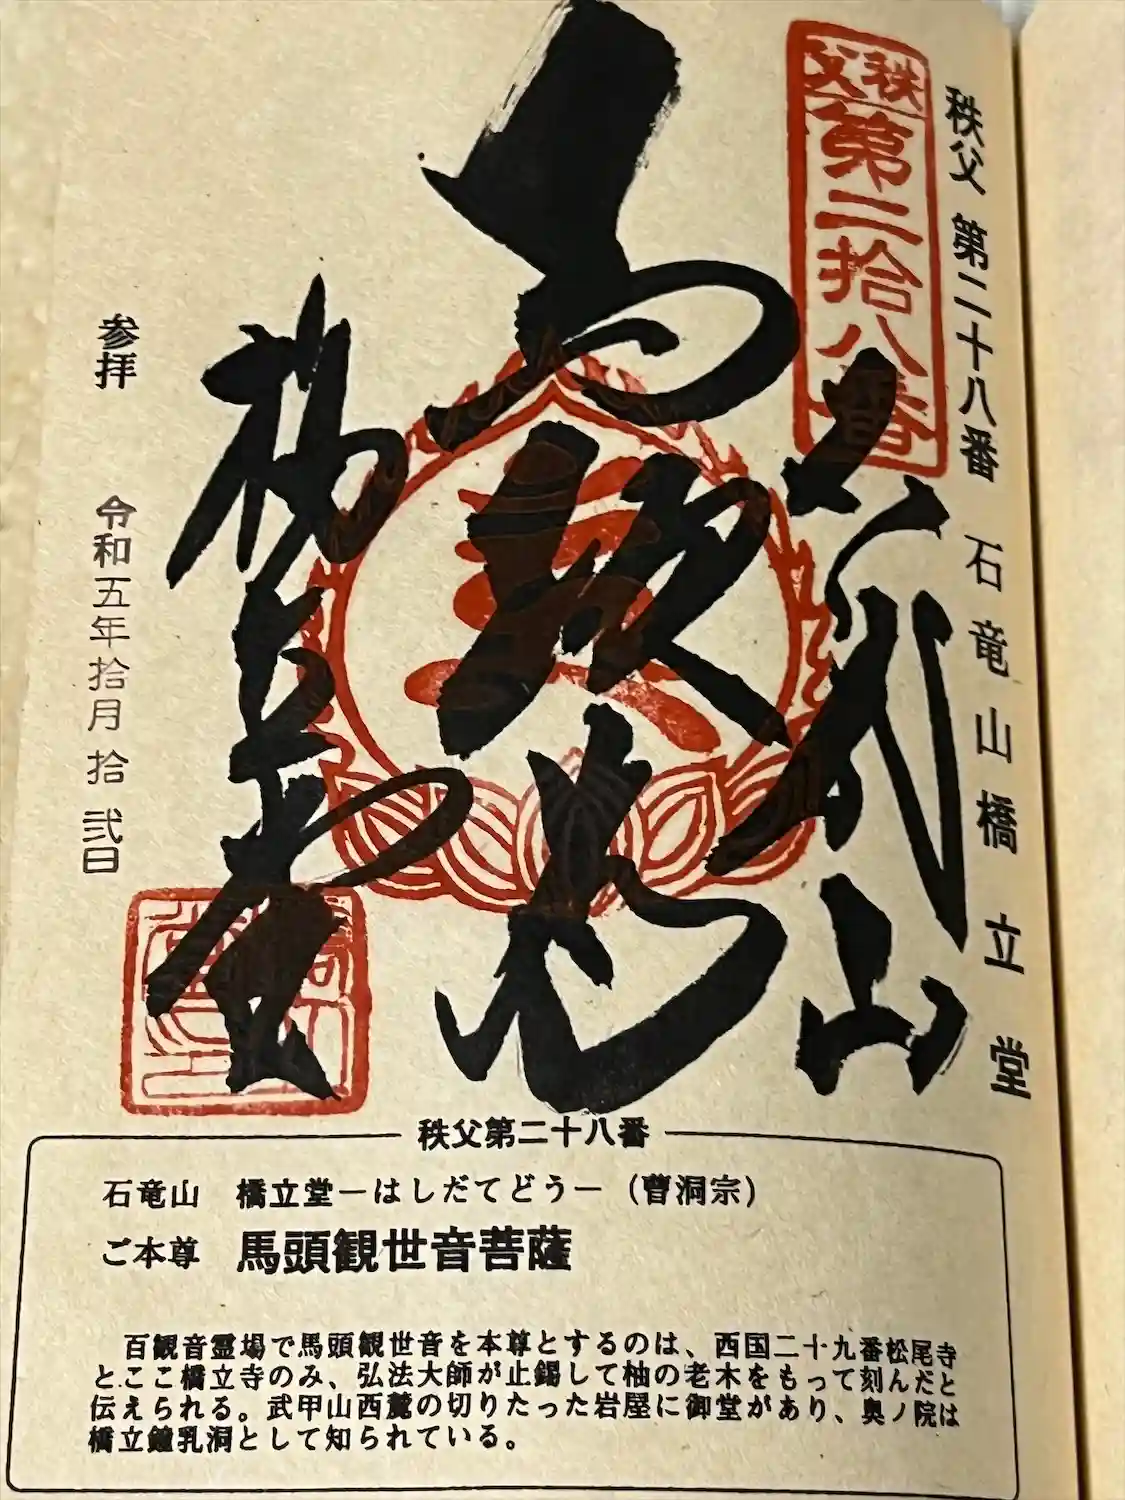 秩父 第二十八番 石竜山橋立堂
秩父
第二拾八番
石竜山
馬頭尊
橋立堂
参拝 令和五年拾月拾弐日
秩父第二十八番
石竜山 橋立堂－はしだてどう－（曹洞宗）
ご本尊 馬頭観世音菩薩
百観音霊場で馬頭観世音を本尊とするのは、西国二十九番松尾寺
とここ橋立寺のみ、弘法大師が止錫して柚の老木をもって刻んだと
伝えられる。武甲山西麓の切りたった岩屋に御堂があり、奥ノ院は
橋立鐘乳洞として知られている。